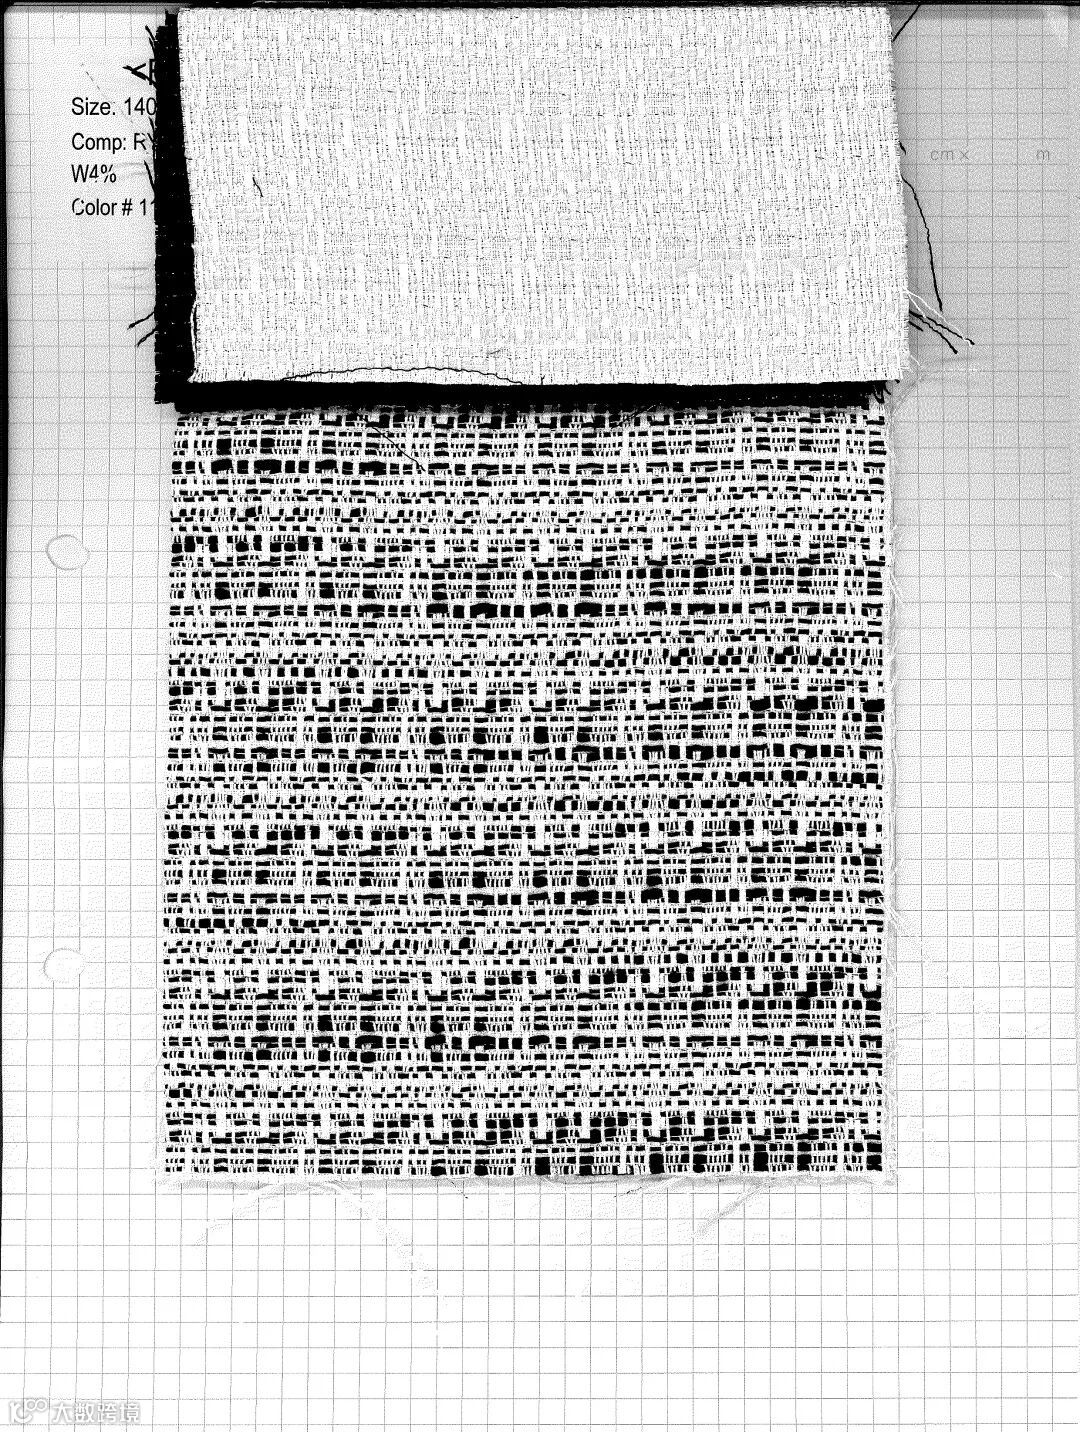 Size: 140
Comp: R
W4%
Color # 11
cm x m
大数跨境